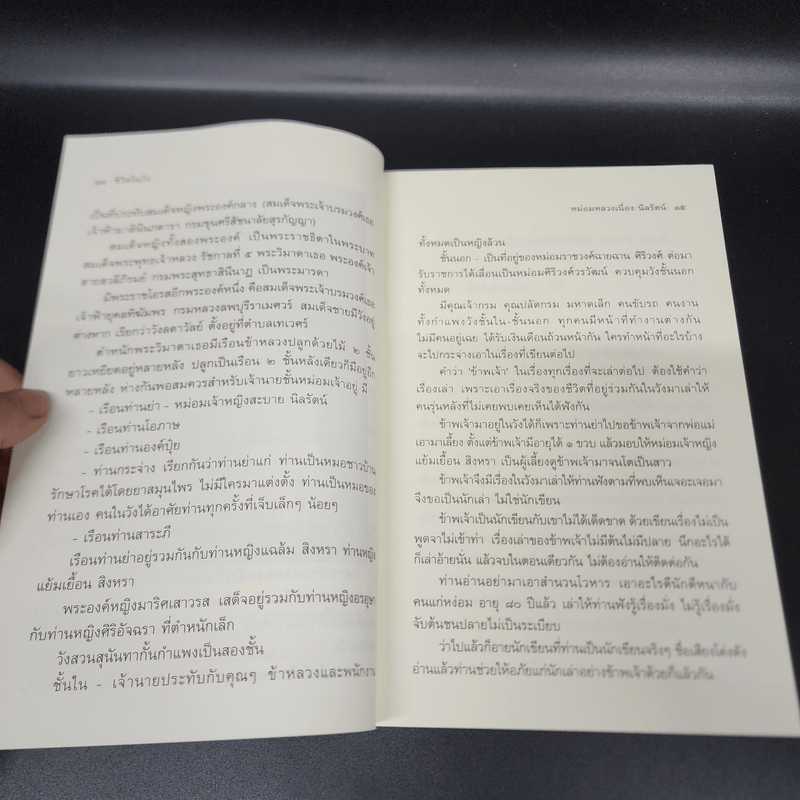 ๑๔ ชีวิตในวัง
เป็นที่ประทับสมเด็จหญิงพระองค์กลาง (สมเด็จพระเจ้าบรมวงศ์เธอ
เจ้าฟ้ามาลินีนภดารา กรมขุนศรีสัชนาลัยสุรกัญญา)
สมเด็จหญิงทั้งสองพระองค์ เป็นพระราชธิดาในพระบาท
สมเด็จพระพุทธเจ้าหลวง รัชกาลที่ ๕ พระวิมาดาเธอ พระองค์เจ้า
สายสวลีภิรมย์ กรมพระสุทธาสินีนาฏ เป็นพระมารดา
มีพระราชโอรสอีกพระองค์หนึ่ง คือสมเด็จพระเจ้าบรมวงศ์เธอ
เจ้าฟ้ายุคลทิฆัมพร กรมหลวงลพบุรีราเมศวร์ สมเด็จชายมีวังอยู่
ต่างหาก เรียกว่าวังลดาวัลย์ ตั้งอยู่ที่ตำบลเทเวศร์
ตำหนักพระวิมาดาเธอมีเรือนข้าหลวงปลูกด้วยไม้ ๒ ชั้น
ยาวเหยียดอยู่หลายหลัง ปลูกเป็นเรือน ๒ ชั้นหลังเดียวก็มีอยู่อีก
หลายหลัง ห่างกันพอสมควรสำหรับเจ้านายชั้นหม่อมเจ้าอยู่ มี
- เรือนท่านย่า - หม่อมเจ้าหญิงสะบาย นิลรัตน์
- เรือนท่านโอภาษ
- เรือนท่านองค์ปุ๋ย
- ท่านกระจ่าง เรียกกันว่าท่านย่าแก่ ท่านเป็นหมอชาวบ้าน
รักษาโรคได้โดยยาสมุนไพร ไม่มีใครมาแต่งตั้ง ท่านเป็นหมอของ
ท่านเอง คนในวังได้อาศัยท่านทุกครั้งที่เจ็บเล็กๆ น้อยๆ
- เรือนท่านสาระภี
เรือนท่านย่าอยู่รวมกันกับท่านหญิงแฉล้ม สิงหรา ท่านหญิง
แย้มเยื้อน สิงหรา
พระองค์หญิงมาริศเสาวรส เสด็จอยู่รวมกับท่านหญิงอรอุษา
กับท่านหญิงศิริอัจฉรา ที่ตำหนักเล็ก
วังสวนสุนันทากั้นกำแพงเป็นสองชั้น
ชั้นใน - เจ้านายประทับกับคุณๆ ข้าหลวงและพนักงาน
หม่อมหลวงเนื่อง นิลรัตน์ ๑๕
ทั้งหมดเป็นหญิงล้วน
ชั้นนอก - เป็นที่อยู่ของหม่อมราชวงศ์ฉายฉาน ศิริวงศ์ ต่อมา
รับราชการได้เลื่อนเป็นหม่อมศิริวงศ์วรวัฒน์ ควบคุมวังชั้นนอก
ทั้งหมด
มีคุณเจ้ากรม คุณปลัดกรม มหาดเล็ก คนขับรถ คนงาน
ทั้งกำแพงวังชั้นใน-ชั้นนอก ทุกคนมีหน้าที่ทำงานต่างกัน
ไม่มีคนอยู่เฉย ได้รับเงินเดือนถ้วนหน้ากัน ใครทำหน้าที่อะไรบ้าง
จะไปกระจ่างเอาในเรื่องที่เขียนต่อไป
คำว่า ‘ข้าพเจ้า’ ในเรื่องทุกเรื่องที่จะเล่าต่อไป ต้องใช้คำว่า
เรื่องเล่า เพราะเอาเรื่องจริงของชีวิตที่อยู่ร่วมกันในวังมาเล่าให้
คนรุ่นหลังที่ไม่เคยพบเคยเห็นได้ฟังกัน
ข้าพเจ้ามาอยู่ในวังได้ก็เพราะท่านย่าไปขอข้าพเจ้าจากพ่อแม่
เอามาเลี้ยง ตั้งแต่ข้าพเจ้ามีอายุได้ ๑ ขวบ แล้วมอบให้หม่อมเจ้าหญิง
แย้มเยื้อน สิงหรา เป็นผู้เลี้ยงดูข้าพเจ้ามาจนโตเป็นสาว
ข้าพเจ้าจึงมีเรื่องในวังมาเล่าให้ท่านฟังตามที่พบเห็นเจอะเจอมา
จึงขอเป็นนักเล่า ไม่ใช่นักเขียน
ข้าพเจ้าเป็นนักเขียนกับเขาไม่ได้เด็ดขาด ด้วยเขียนเรื่องไม่เป็น
พูดจาไม่เข้าท่า เรื่องเล่าของข้าพเจ้าไม่มีต้นไม่มีปลาย นึกอะไรได้
ก็เล่าอ้ายนั่น แล้วจบในตอนเดียวกัน ไม่ต้องอ่านให้ติดต่อกัน
ท่านอ่านอย่ามาเอาสำนวนโวหาร เอาอะไรดีนักดีหนากับ
คนแก่หง่อม อายุ ๘๐ ปีแล้ว เล่าให้ท่านฟังรู้เรื่องมั่ง ไม่รู้เรื่องมั่ง
จับต้นชนปลายไม่เป็นระเบียบ
ว่าไปแล้วก็อายนักเขียนที่ท่านเป็นนักเขียนจริงๆ ชื่อเสียงโด่งดัง
อ่านแล้วท่านช่วยให้อภัยแก่นักเล่าอย่างข้าพเจ้าด้วยก็แล้วกัน